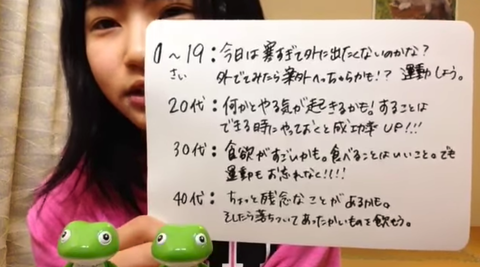 0〜19：今日は寒すぎて外に出たくないのかな？
さい
外でてみたら案外へっちゃらかも!? 運動しよう。
20代：何かとやる気が起きるかも！することは
できる時にやっておくと成功率UP!!!
30代：食欲がすごいかも。食べることはいいこと。でも
運動もお忘れなく!!!!
40代：ちょっと残念なことがあるかも。
そしたら落ちついてあったかいものを飲もう。